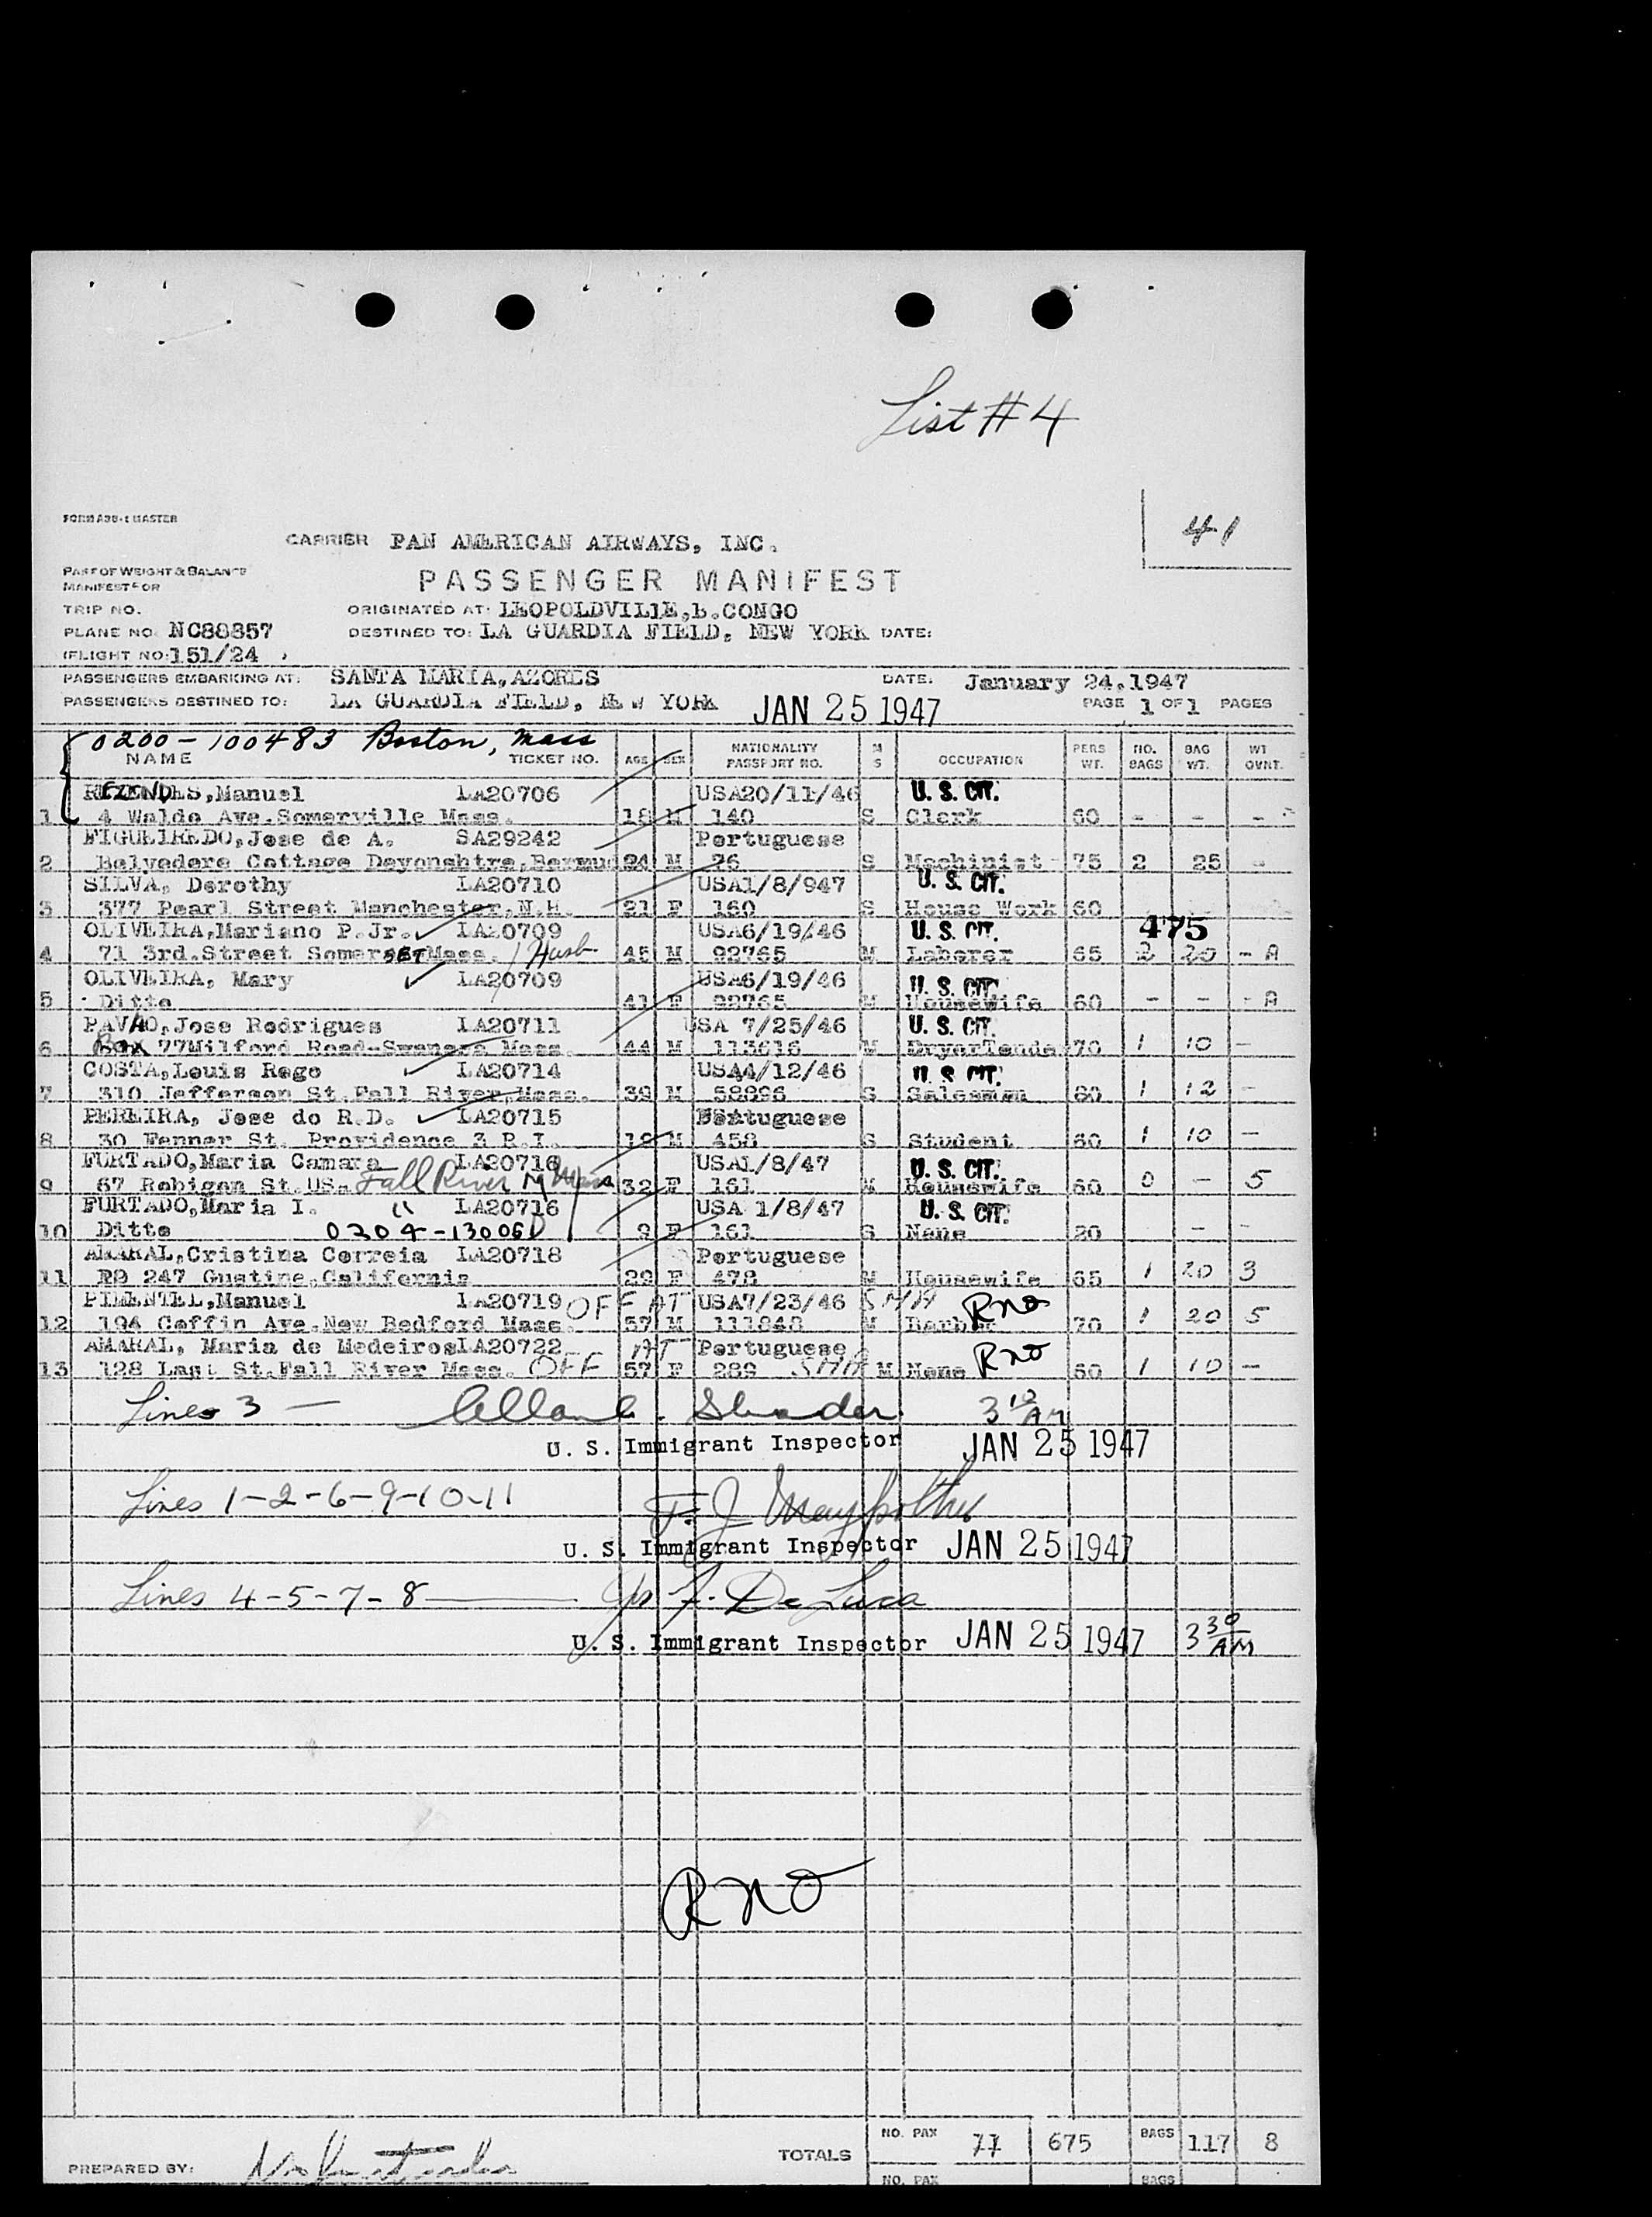 List # 4
41
FORM A30-1 MASTER
CARRIER PAN AMERICAN AIRWAYS, INC.
PART OF WEIGHT & BALANCE
PASSENGER MANIFEST
MANIFEST FOR
TRIP NO. ORIGINATED AT: LEOPOLDVILLE, B.CONGO
PLANE NO. NC88857 DESTINED TO: LA GUARDIA FIELD, NEW YORK DATE:
FLIGHT NO. 151/24
PASSENGERS EMBARKING AT: SANTA MARIA, AZORES DATE: January 24, 1947
PASSENGERS DESTINED TO: LA GUARDIA FIELD, NEW YORK JAN 25 1947 PAGE 1 OF 1 PAGES
0200-100483 Boston, Mass
NAME TICKET NO. AGE SEX NATIONALITY PASSPORT NO. M S OCCUPATION PERS WT. NO. BAGS BAG WT. WT OVNT.
REZENDES, Manuel LA20706 USA20/11/46 U. S. CIT.
1 4 Waldo Ave. Somerville Mass. 18 M 140 S Clerk 60 - - -
FIGUEIREDO, Jose de A. SA29242 Portuguese
2 Belvedere Cottage Devonshire, Bermud 24 M 26 S Machinist 75 2 25 -
SILVA, Dorothy LA20710 USA1/8/947 U. S. CIT.
3 377 Pearl Street Manchester, N.H. 21 F 160 S House Work 60
OLIVEIRA, Mariano P. Jr. LA20709 USA6/19/46 U. S. CIT. 475
4 71 3rd. Street Somerset Mass. Husb 45 M 92765 M Laborer 65 2 20 - A
OLIVEIRA, Mary LA20709 USA6/19/46 U. S. CIT.
5 Ditto 41 F 92765 M Housewife 60 - - - A
PAVAO, Jose Rodrigues LA20711 USA 7/25/46 U. S. CIT.
6 Box 77 Milford Road-Swansea Mass. 44 M 113616 M DryerTende 70 1 10 -
COSTA, Louis Rego LA20714 USA4/12/46 U. S. CIT.
7 310 Jefferson St. Fall River, Mass. 39 M 58896 S Salesman 60 1 12 -
PEREIRA, Jose do R.D. LA20715 Portuguese
8 30 Fenner St. Providence 3 R.I. 19 M 458 S Student 60 1 10 -
FURTADO, Maria Camara LA20716 USA1/8/47 U. S. CIT.
9 67 Robigan St. US- Fall River Mass 32 F 161 M Housewife 60 0 - 5
FURTADO, Maria I. " LA20716 USA 1/8/47 U. S. CIT.
10 Ditto 0204-13006 9 F 161 S None 20 - -
AMARAL, Cristina Correia LA20718 Portuguese
11 R9 247 Gustine, California 29 F 478 M Housewife 65 1 20 3
PIMENTEL, Manuel LA20719 OFF AT USA7/23/46 SMA RNO
12 194 Coffin Ave. New Bedford Mass. 57 M 111848 M Barber 70 1 20 5
AMARAL, Maria de Medeiros LA20722 AT Portuguese
13 128 Last St. Fall River Mass. OFF 57 F 289 SMA M None RNO 60 1 10 -
Lines 3 — 3 10 AM
U. S. Immigrant Inspector JAN 25 1947
Lines 1-2-6-9-10-11
U. S. Immigrant Inspector JAN 25 1947
Lines 4-5-7-8 — F. De Luca
U. S. Immigrant Inspector JAN 25 1947 3 30 AM
RNO
TOTALS NO. PAX 11 675 BAGS 117 8
PREPARED BY:
NO. PAX BAGS